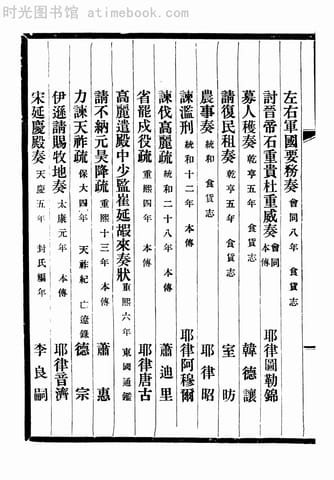 时光图书馆 - atimebook.com
左右軍國要務奏 會同八年 食貨志
討晉帝石重貴杜重威奏 會同 本傳 耶律圖勒錦
募人穫奏 乾亨五年 食貨志 韓德讓
請復民租奏 乾亨五年 食貨志 室昉
農事奏 統和 食貨志 耶律昭
諫濫刑 統和十二年 本傳 耶律阿穆爾
諫伐高麗疏 統和二十八年 本傳 蕭迪里
省罷戍役疏 重熙四年 本傳 耶律唐古
高麗遣殿中少監崔延嘏來奏狀 重熙六年 東國通鑑
請不納元昊降疏 重熙十三年 本傳 蕭惠
力諫天祚疏 保大四年 天祚紀 亡遼錄 德宗
伊遜請賜牧地奏 太康元年 本傳 耶律音濟
宋延慶殿奏 天慶五年 封氏編年 李良嗣
一